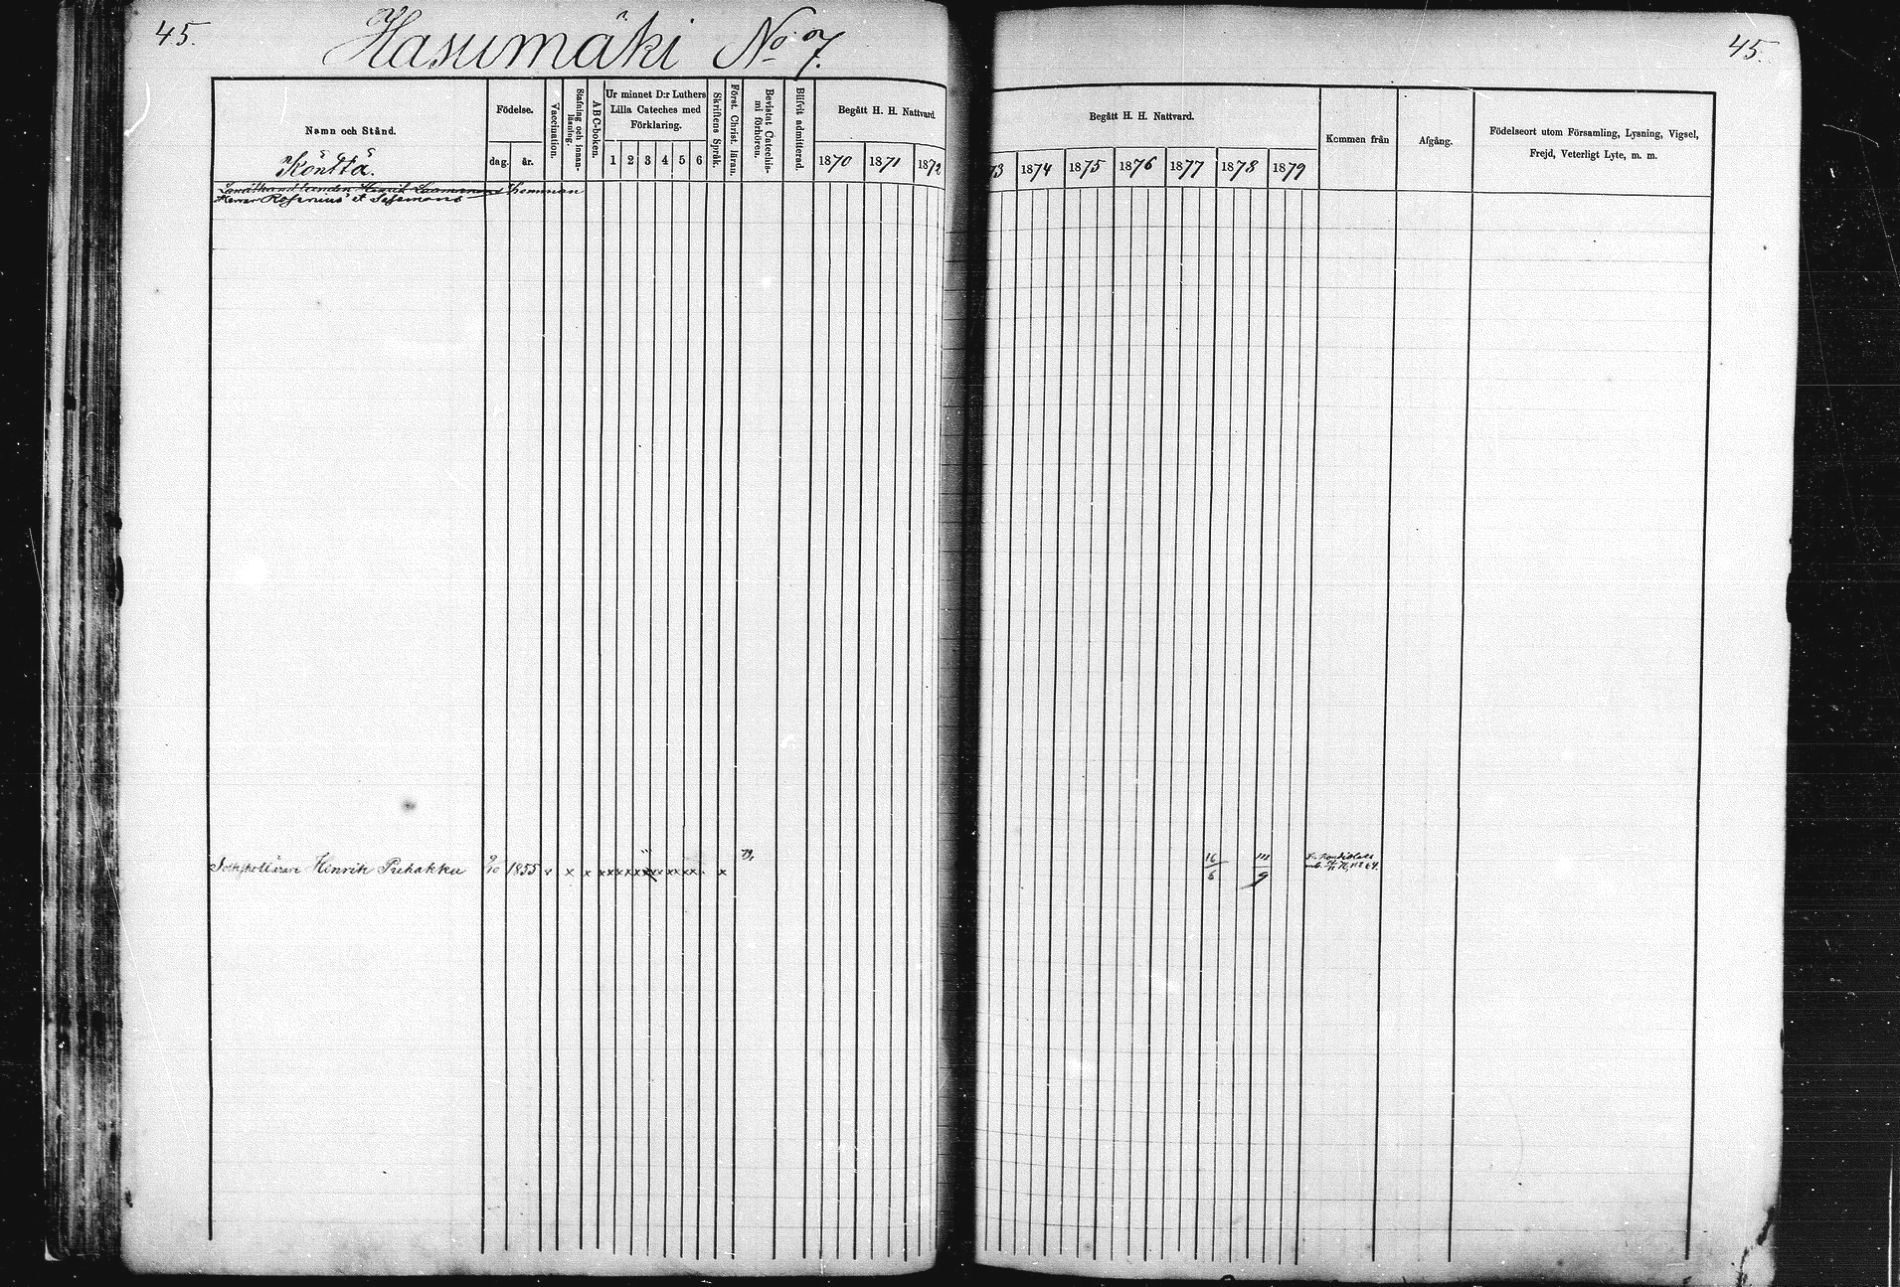 45.
Hasumäki No 7.
45.
Namn och Stånd.
Födelse.
dag.
år.
Vaccination.
Stafning och innan-
läsning.
ABC-boken.
Ur minnet D:r Luthers
Lilla Cateches med
Förklaring.
1 2 3 4 5 6
Skriftens Språk.
Först. Christ. läran.
Bevistat Catechis-
mi förhören.
Blifvit admitterad.
Begått H. H. Nattvard.
1870 1871 1872
Könttä.
Henrik Kommun
Herrar Rosenius et Sesemans
Henrik Puhakku 9/10 1855 v x x x x x x x x x x x x x x
Begått H. H. Nattvard.
73 1874 1875 1876 1877 1878 1879
Kommen från
Afgång.
Födelseort utom Församling, Lysning, Vigsel,
Frejd, Veterligt Lyte, m. m.
16/6
9